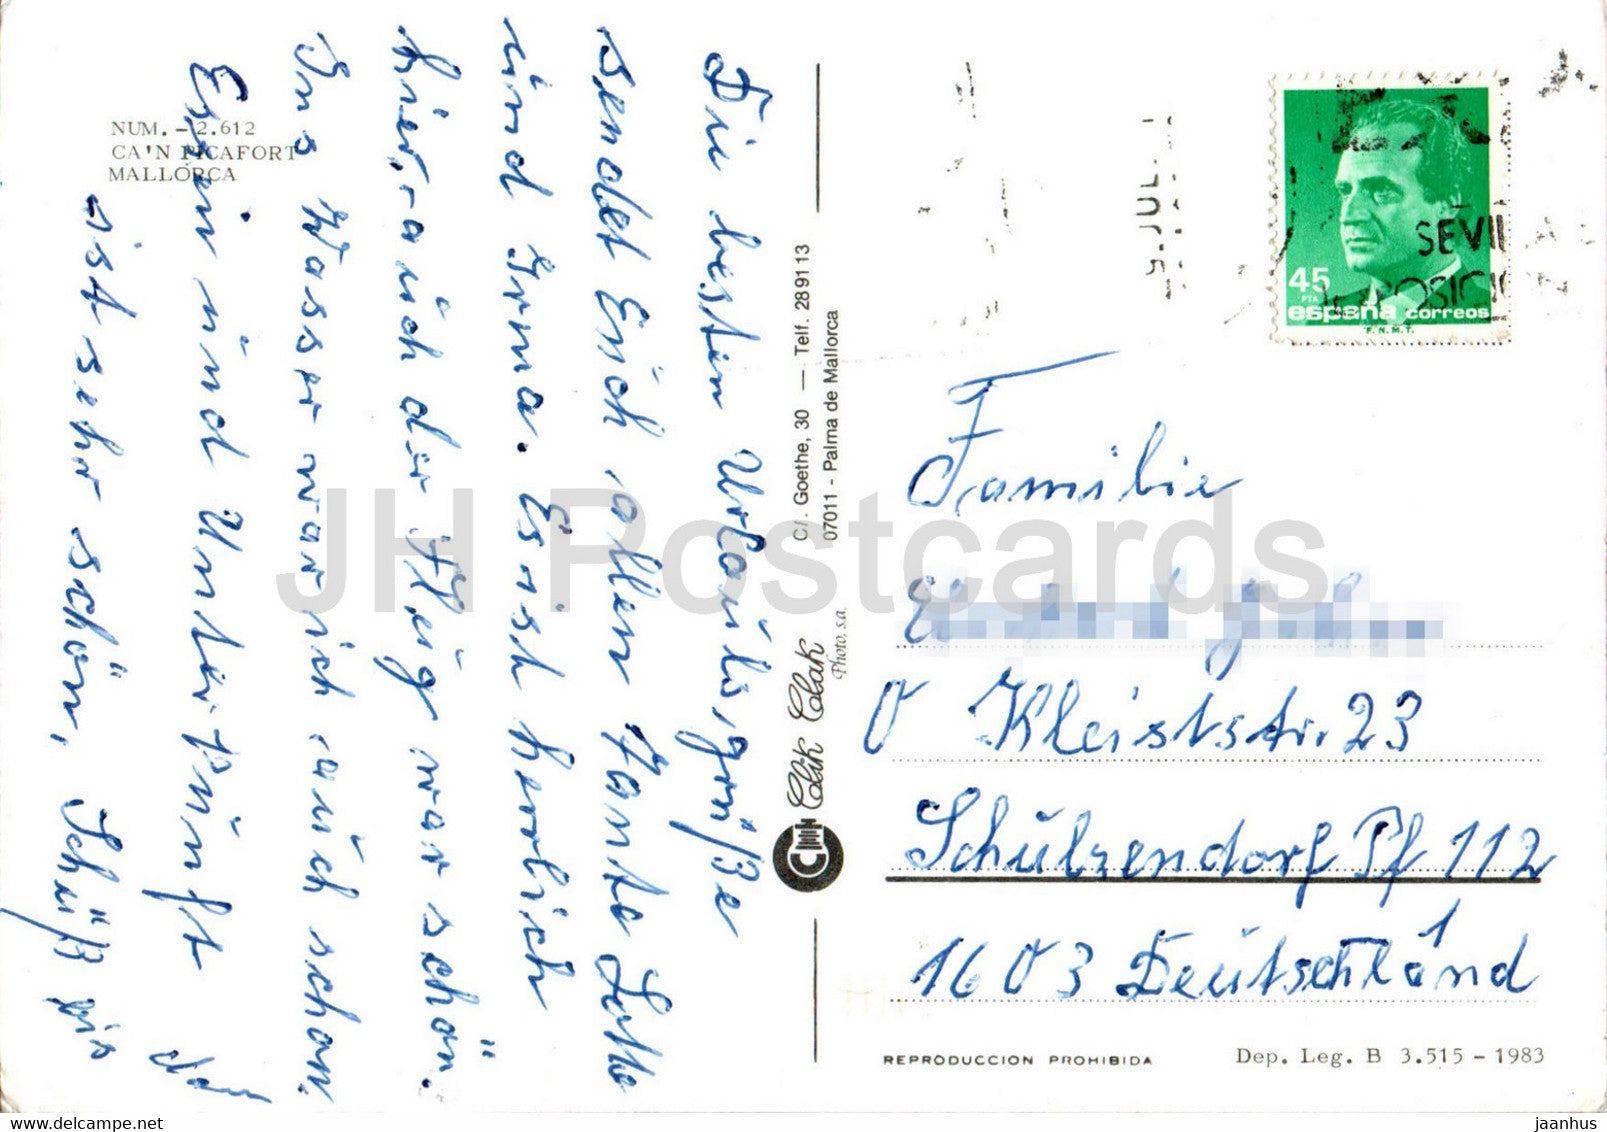 NUM. - 2.612
CA'N PICAFORT
MALLORCA
Die besten Urlaubsgrüße
sendet Euch allen Tante Lotte
und Irma. Es ist herrlich
hier, auch der Flug war schön.
Ins Wasser war ich auch schon.
Essen und Unterkunft
ist sehr schön, Schüß bis
C/. Goethe, 30 — Telf. 28 91 13
07011 - Palma de Mallorca
Clik Clak
Photo, s.a.
5. JUL
SEVIL
POSICI
45
PTA
españa correos
F.N.M.T.
Familie
O Kleiststr. 23
Schulzendorf Pf 112
1603 Deutschland
REPRODUCCION PROHIBIDA
Dep. Leg. B 3.515 - 1983
JH Postcards
www.delcampe.net
jaanhus